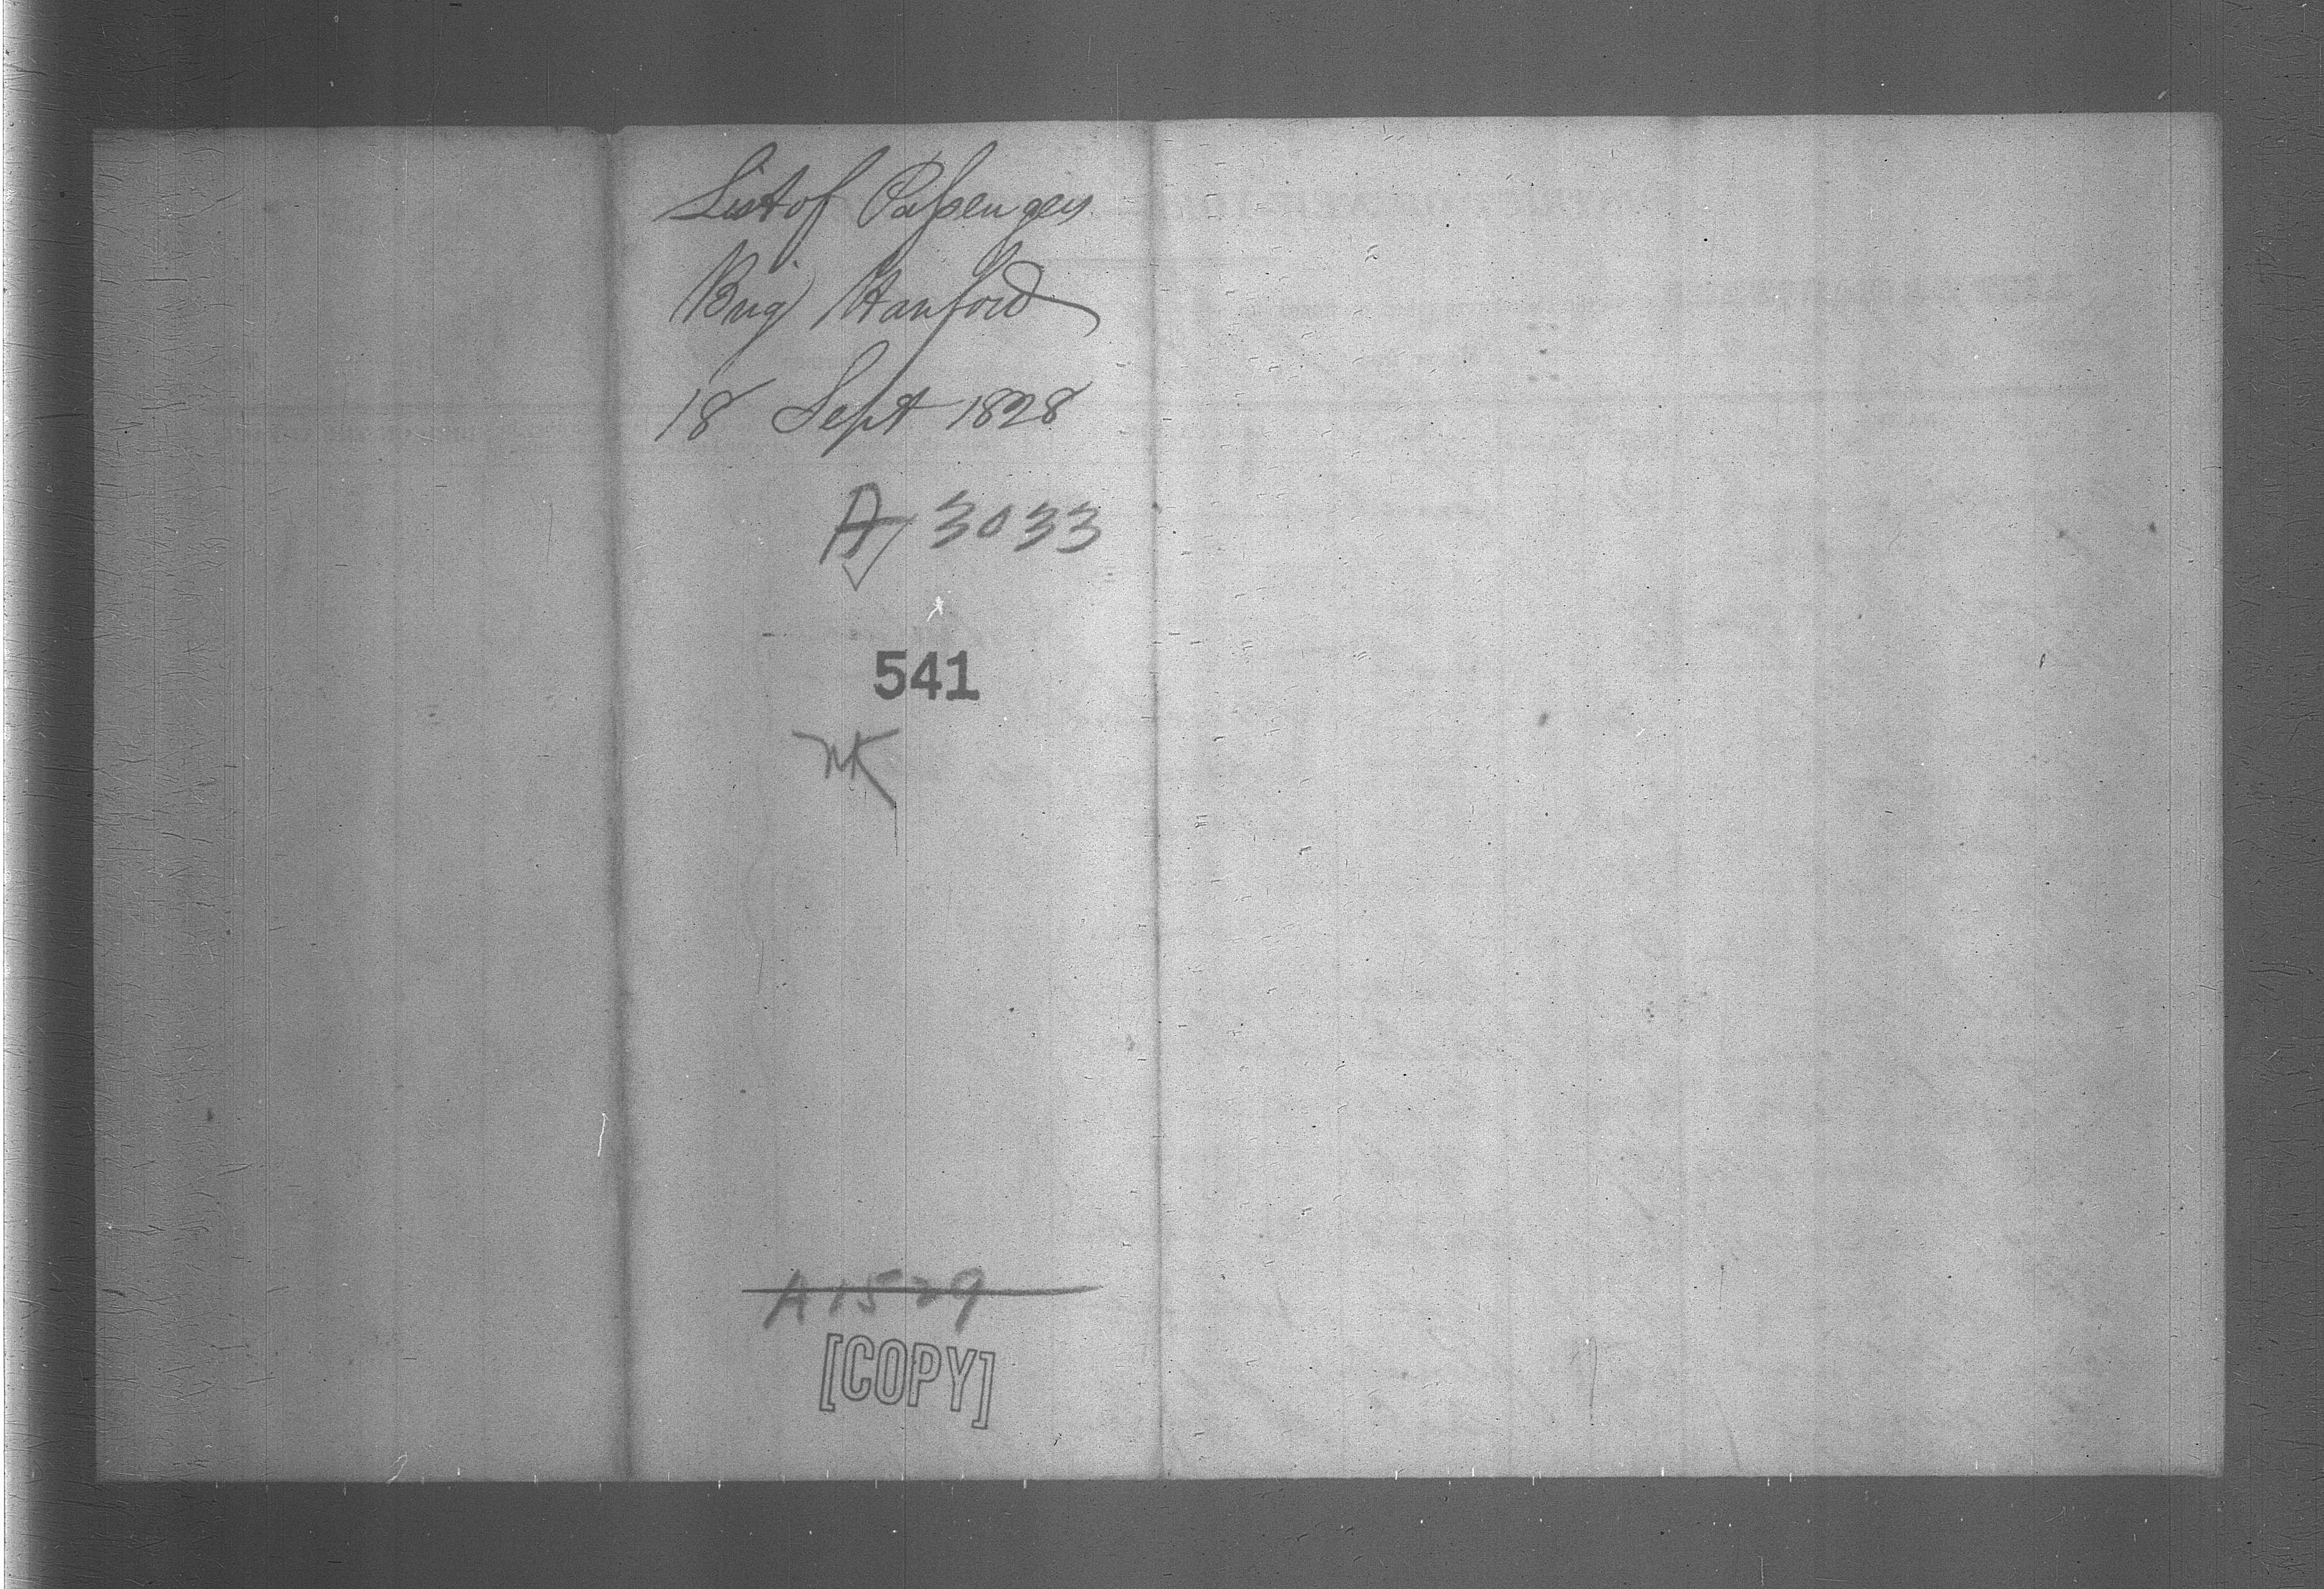 List of Passengers
Brig Hanford
18 Sept 1828
A 3033
541
NK
A 1529
[COPY]